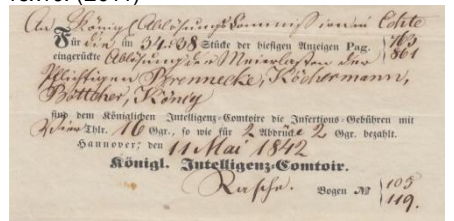 An Königl. Ablösungs Commission in Celle
Für die im 34. & 38 Stücke der hiesigen Anzeigen Pag. 763
eingerückte Ablösung der Meierlasten der 861
Pflichtigen Brennecke, Köchermann,
Böttcher, König
sind dem Königlichen Intelligenz-Comtoire die Insertions-Gebühren mit
Vier Thlr. 16 Ggr., so wie für 2 Abdrücke 2 Ggr. bezahlt.
Hannover, den 11 Mai 1842
Königl. Intelligenz-Comtoir.
Rasche. Bogen № 105
119.